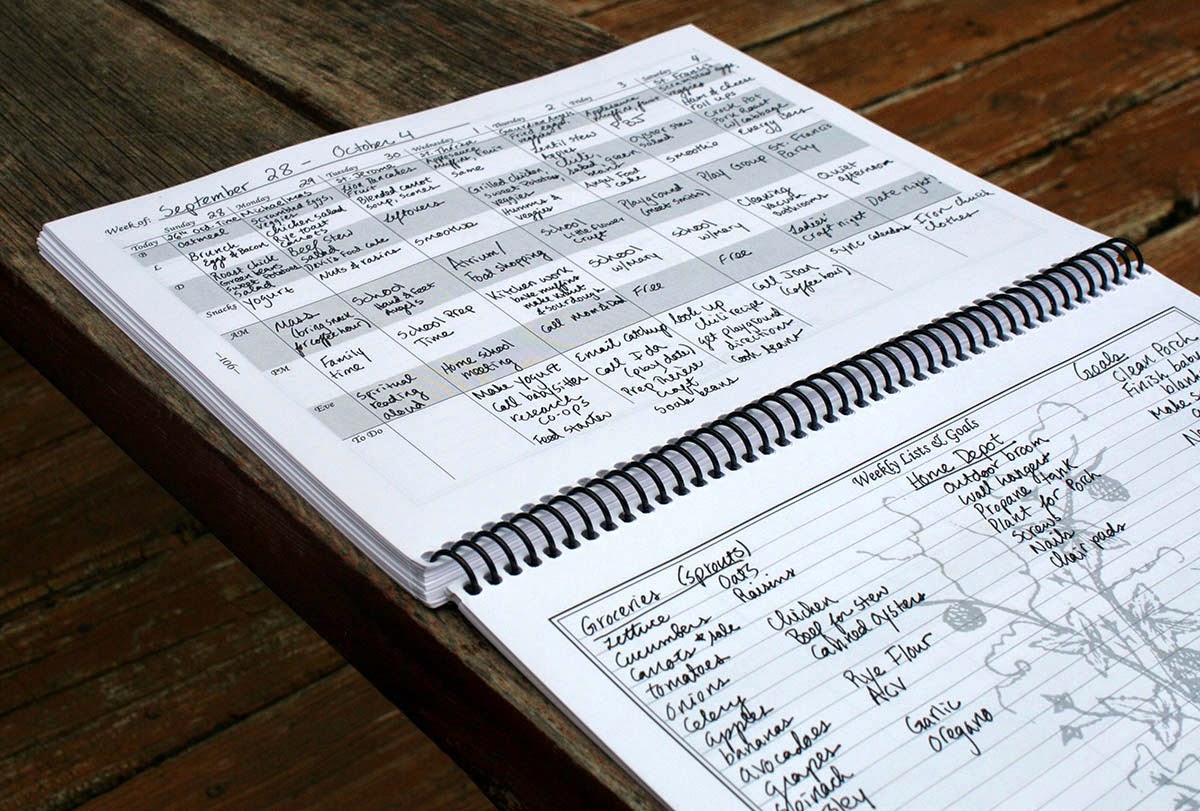 Week of: September 28 - October 4
Sunday 28
Monday 29
Tuesday 30
Wednesday 1
Thursday 2
Friday 3
Saturday 4
Today
26th Ord. Time
Michaelmas
St. Jerome
St. Therese
Guardian Angels
St. Francis
B
Oatmeal
Scrambled Eggs,
veggies
Pancakes
Fruit
Applesauce
muffins, fruit
Fried eggs
veggies
Applesauce
muffins, fruit
Scrambled eggs
veggies
L
Brunch
Eggs & Bacon
Chicken salad
Rye toast
Blended carrot
soup, scones
Same
Lentil stew
PBJ
Ham & cheese
roll ups
D
Roast chick
Green beans
Sweet Potatoes
Salad
Beef Stew
Salad
Devil's Food cake
leftovers
Grilled chicken
Sweet Potatoes
veggies
Chili
salad, green
Angel Food
cake
Oyster stew
Salad
Crock Pot
Pork Roast
w/ cabbage
Snacks
Yogurt
Nuts & raisins
smoothie
Hummus &
veggies
smoothie
Energy Bars
AM
Mass
(bring snack
for coffee hour)
School
Hand & Feet
Angels
Atrium/
Food shopping
School
Little Flower
Craft
Playground
(meet Smiths)
Play Group
St. Francis
Party
PM
Family
time
School Prep
Time
Kitchen work
bake muffins
make yogurt
& sourdough
School
w/ Mary
School
w/ Mary
Cleaning
Vacuum
bathrooms
Quiet
afternoon
Eve
Spiritual
reading
aloud
Home school
meeting
Call Mom & Dad
Free
Free
Ladies'
Craft night
Date night!
To Do
Make yogurt
Call babysitter
research
co-ops
Feed starter
Email catchup
Call Ida
(play date)
Prep Therese
craft
Soak beans
look up
chili recipe
get playground
directions
Cook beans
Call Joan
(coffee hour)
sync calendars
Iron church
clothes
-100-
Weekly Lists & Goals
Groceries (sprouts)
Lettuce
Cucumbers
Carrots & kale
tomatoes
Onions
Celery
apples
bananas
avocadoes
grapes
spinach
Oats
Raisins
Chicken
Beef for stew
Canned oysters
Rye Flour
ACV
Garlic
Oregano
Home Depot
outdoor broom
wall hangers
Propane tank
Plant for Porch
Screws
Nails
chair pads
Goals
Clean Porch
Finish baby
Make